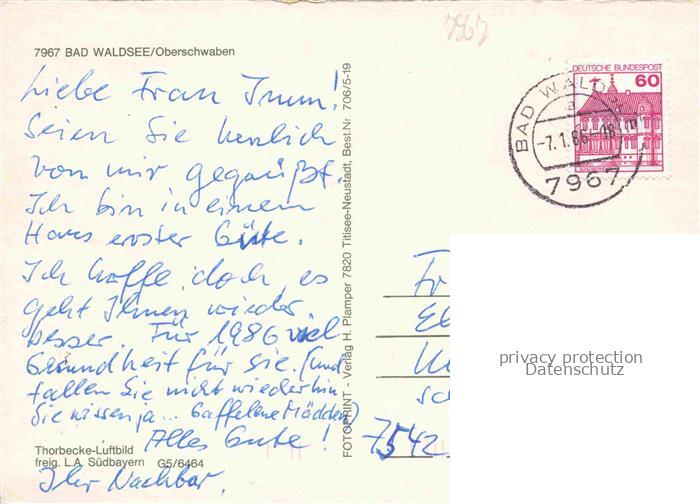 7967
7967 BAD WALDSEE/Oberschwaben
Liebe Frau Imm!
Seien Sie herzlich
von mir gegrüßt.
Ich bin in einem
Haus erster Güte.
Ich hoffe doch, es
geht Ihnen wieder
besser. Für 1986 viel
Gesundheit für Sie. (Und
fallen Sie nicht wieder hin
Sie wissen ja... Gaffelene Mädden)
Alles Gute!
Ihr Nachbar.
Thorbecke-Luftbild
freig. L.A. Südbayern G5/6464
FOTOPRINT - Verlag H. Plamper 7820 Titisee-Neustadt, Best.Nr 706/5-19
DEUTSCHE BUNDESPOST
60
BAD WALD
a
-7.1.86-18
7967
Fr
El
sc
7542
privacy protection
Datenschutz